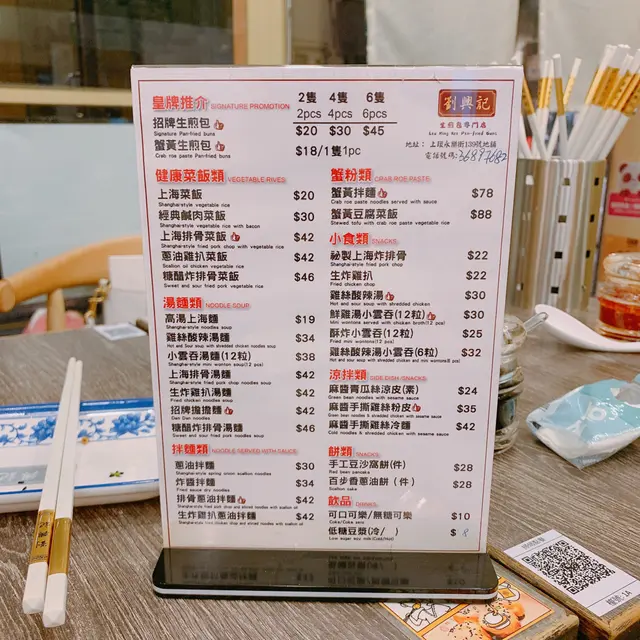 皇牌推介 SIGNATURE PROMOTION
2隻 4隻 6隻
2pcs 4pcs 6pcs
招牌生煎包 $20 $30 $45
Signature Pan-fried buns
蟹黃生煎包 $18/1隻1pc
Crab roe paste buns
劉興記
生煎包專門店
Lau Hing Kee Pan-fried Buns
地址：上環永樂街139號地舖
電話號碼:36897682
健康菜飯類 VEGETABLE RIVES
上海菜飯 $20
Shanghai-style vegetable rice
經典鹹肉菜飯 $30
Shanghai-style vegetable rice with bacon
上海排骨菜飯 $42
Shanghai-style fried pork chop with vegetable rice
蔥油雞扒菜飯 $42
Scallion oil chicken vegetable rice
糖醋炸排骨菜飯 $46
Sweet and sour fried pork vegetable rice
湯麵類 NOODLE SOUP
高湯上海麵 $19
Shanghai-style noodles soup
雞絲酸辣麵 $34
Hot and Sour soup with shredded chicken noodles soup
小雲吞湯麵(12粒) $38
Shanghai-style mini wonton soup(12 pcs)
上海排骨湯麵 $42
Shanghai-style fried pork chop noodles soup
生炸雞扒湯麵 $42
Fried chicken noodles soup
招牌擔擔麵 $42
Dan Dan noodles
糖醋炸排骨湯麵 $46
Sweet and sour fried pork noodles soup
拌麵類 NOODLE SERVED WITH SAUCE
蔥油拌麵 $30
Shanghai-style spring onion scallion noodles
炸醬拌麵 $34
Fried sauce dry noodles
排骨蔥油拌麵 $42
Shanghai-style fried pork chop and stirred noodles with scallion oil
生炸雞扒蔥油拌麵 $42
Shanghai-style fried chicken chop and stirred noodles with scallion oil
蟹粉類 CRAB ROE PASTE
蟹黃拌麵 $78
Crab roe paste noodles served with sauce
蟹黃豆腐菜飯 $88
Stewed tofu with crab roe paste vegetable rice
小食類 SNACKS
祕製上海炸排骨 $22
Shanghai-style fried pork chop
生炸雞扒 $22
Fried chicken chop
雞絲酸辣湯 $30
Hot and sour soup with shredded chicken
鮮雞湯小雲吞(12粒) $30
Mini wontons served with chicken broth(12 pcs)
酥炸小雲吞(12粒) $25
Fried mini wontons(12 pcs)
雞絲酸辣湯小雲吞(6粒) $32
Hot and sour soup with shredded chicken and mini wontons(6 pcs)
涼拌類 SIDE DISH (SNACKS)
麻醬青瓜絲涼皮(素) $24
Green bean noodles with sesame sauce
麻醬手撕雞絲粉皮 $35
Green bean noodles & shredded chicken with sesame sauce
麻醬手撕雞絲冷麵 $42
Cold noodles & shredded chicken with sesame sauce
餅類 SNACKS
手工豆沙窩餅(件) $28
Red bean pancake
百步香蔥油餅(件) $28
Scallion cake
飲品 DRINKS
可口可樂/無糖可樂 $10
Coke/Coke zero
低糖豆漿(冷/ ) $ 8
Low sugar soy milk(Cold/Hot)
檯號:1A